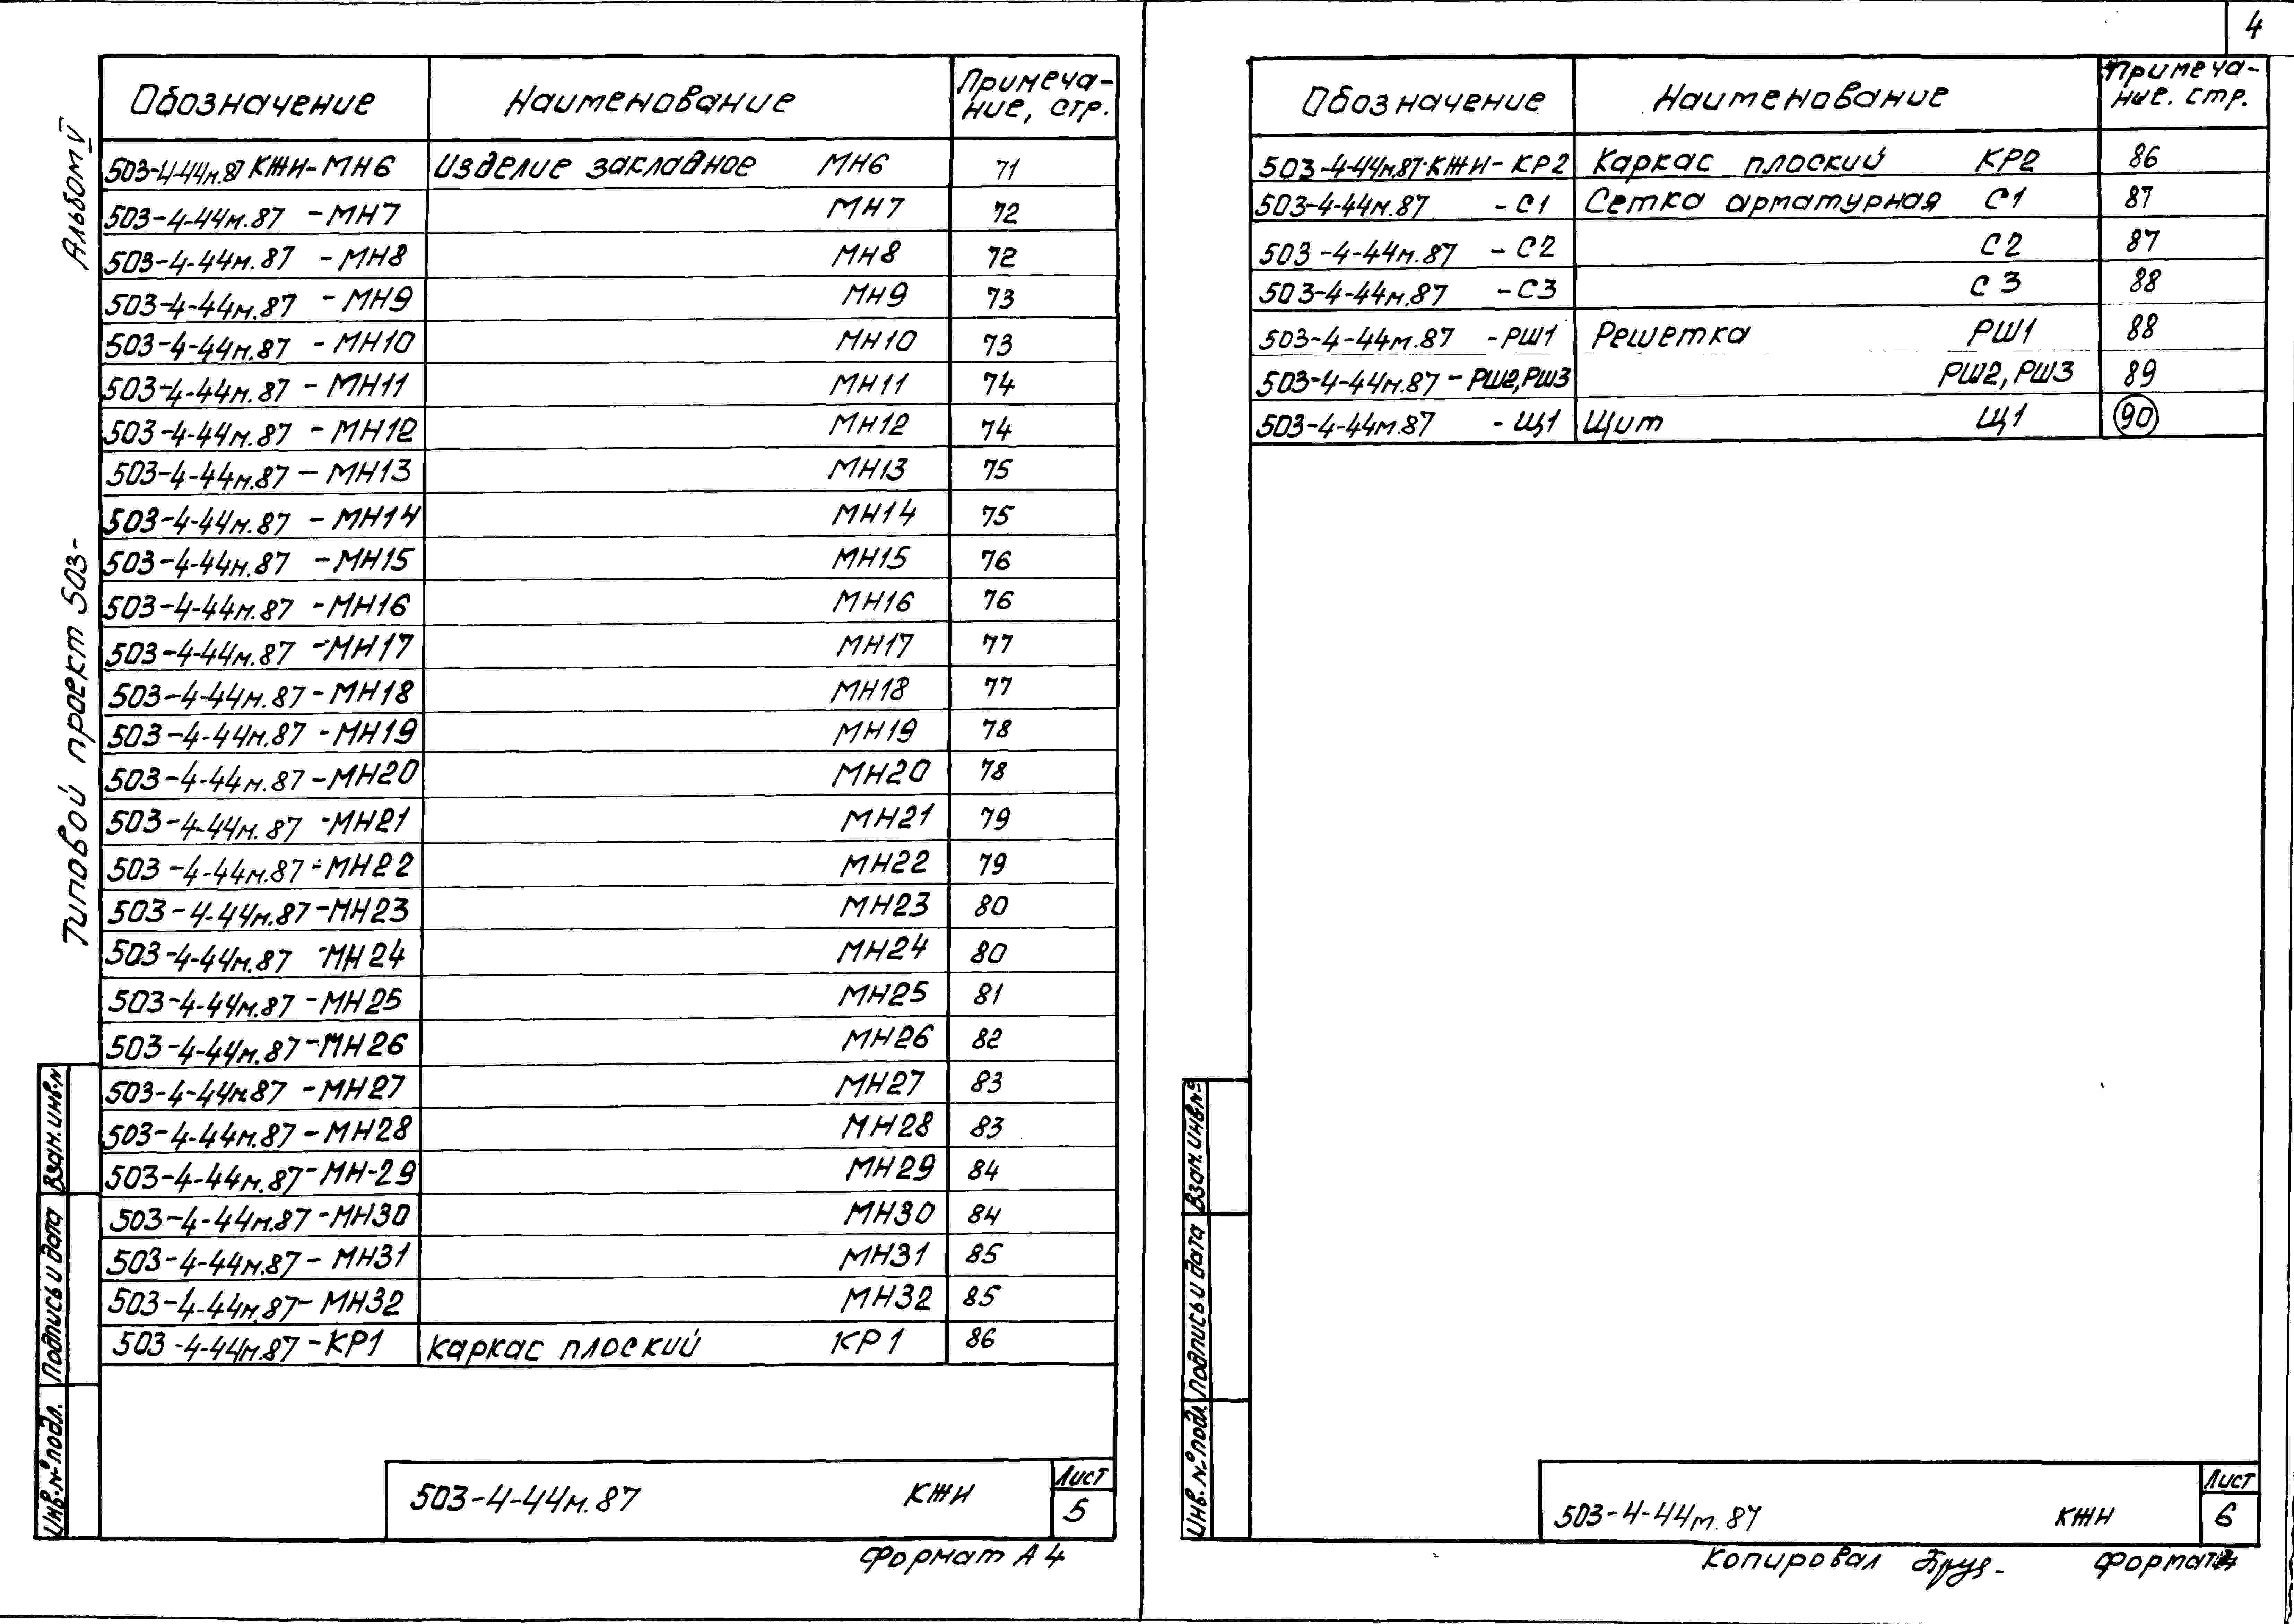 4
Альбом V
Типовой проект 503-
Обозначение Наименование Примеча-
ние, стр.
503-4-44м.87 КЖИ-МН6 Изделие закладное МН6 71
503-4-44м.87 -МН7 МН7 72
503-4-44м.87 -МН8 МН8 72
503-4-44м.87 -МН9 МН9 73
503-4-44м.87 -МН10 МН10 73
503-4-44м.87 -МН11 МН11 74
503-4-44м.87 -МН12 МН12 74
503-4-44м.87 -МН13 МН13 75
503-4-44м.87 -МН14 МН14 75
503-4-44м.87 -МН15 МН15 76
503-4-44м.87 -МН16 МН16 76
503-4-44м.87 -МН17 МН17 77
503-4-44м.87 -МН18 МН18 77
503-4-44м.87 -МН19 МН19 78
503-4-44м.87 -МН20 МН20 78
503-4-44м.87 -МН21 МН21 79
503-4-44м.87 -МН22 МН22 79
503-4-44м.87 -МН23 МН23 80
503-4-44м.87 -МН24 МН24 80
503-4-44м.87 -МН25 МН25 81
503-4-44м.87 -МН26 МН26 82
503-4-44м.87 -МН27 МН27 83
503-4-44м.87 -МН28 МН28 83
503-4-44м.87 -МН-29 МН29 84
503-4-44м.87 -МН30 МН30 84
503-4-44м.87 -МН31 МН31 85
503-4-44м.87 -МН32 МН32 85
503-4-44м.87 -КР1 Каркас плоский КР1 86
Взам.инв.№
Подпись и дата
Инв.№ подл.
503-4-44м.87 КЖИ
Лист
5
Формат А4
Обозначение Наименование Примеча-
ние. стр.
503-4-44м.87·КЖИ-КР2 Каркас плоский КР2 86
503-4-44м.87 -С1 Сетка арматурная С1 87
503-4-44м.87 -С2 С2 87
503-4-44м.87 -С3 С3 88
503-4-44м.87 -РШ1 Решетка РШ1 88
503-4-44м.87 -РШ2,РШ3 РШ2,РШ3 89
503-4-44м.87 -Щ1 Щит Щ1 90
Взам.инв.№
Подпись и дата
Инв.№ подл.
503-4-44м.87 КЖИ
Лист
6
Копировал Формат